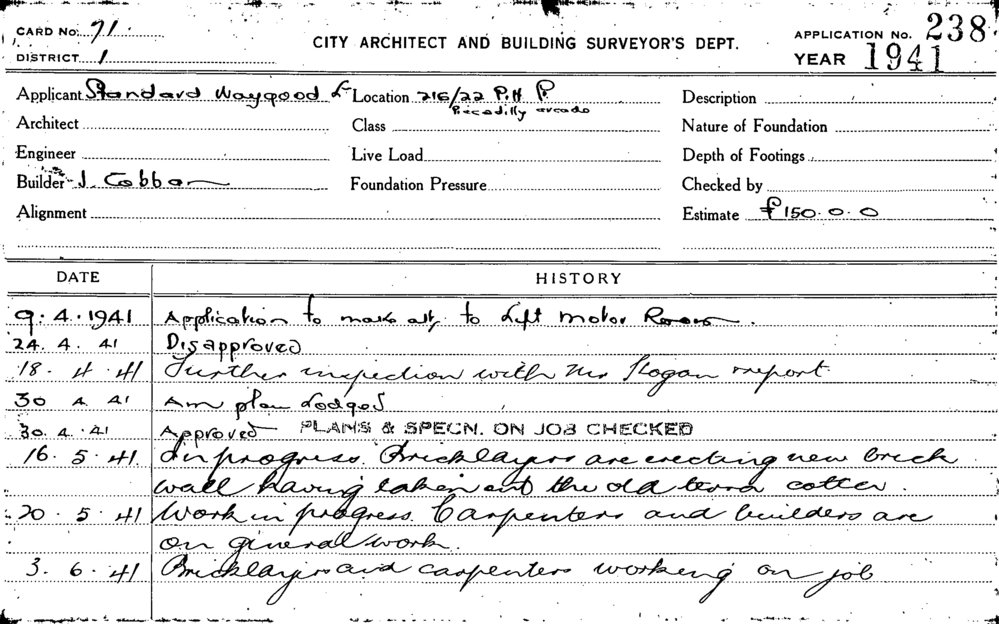 CARD No. 71.
DISTRICT 1
CITY ARCHITECT AND BUILDING SURVEYOR'S DEPT.
APPLICATION No. 238
YEAR 1941
Applicant Standard Waygood Location 216/22 P.H. P. Description
Piccadilly arcade
Architect Class Nature of Foundation
Engineer Live Load Depth of Footings
Builder J. Cobban Foundation Pressure Checked by
Alignment Estimate £150.0.0
DATE HISTORY
9.4.1941 Application to make alt. to Lift motor Room.
24.4.41 Disapproved
18.4.41 Further inspection with Mr Hogan report
30 4.41 Am plan Lodged
30.4.41 Approved PLANS & SPECN. ON JOB CHECKED
16.5.41 In progress. Bricklayers are erecting new brick
wall having taken out the old terra cotter.
20.5.41 Work in progress. Carpenters and builders are
on general work.
3.6.41 Bricklayers and carpenters working on job